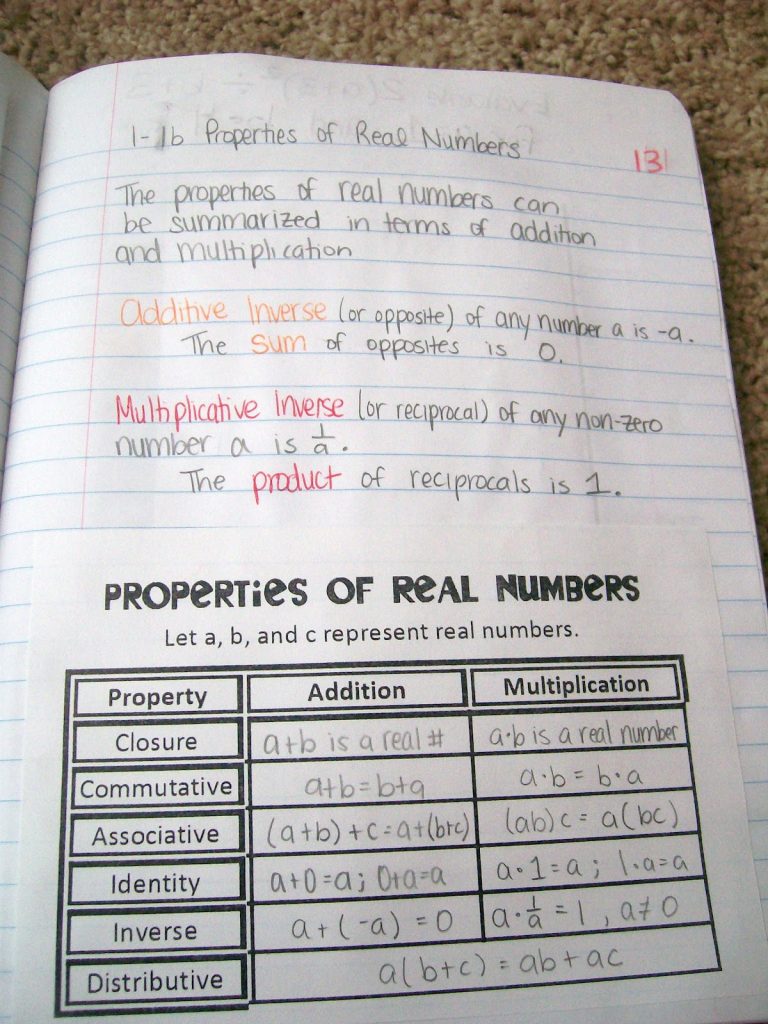 1-1b Properties of Real Numbers
13
The properties of real numbers can
be summarized in terms of addition
and multiplication
Additive Inverse (or opposite) of any number a is -a.
The sum of opposites is 0.
Multiplicative Inverse (or reciprocal) of any non-zero
number a is 1/a.
The product of reciprocals is 1.
PROPERTIES OF REAL NUMBERS
Let a, b, and c represent real numbers.
Property Addition Multiplication
Closure a+b is a real # a·b is a real number
Commutative a+b=b+a a·b = b·a
Associative (a+b)+c=a+(b+c) (ab)c = a(bc)
Identity a+0=a; 0+a=a a·1=a; 1·a=a
Inverse a+(-a)=0 a·1/a=1, a≠0
Distributive a(b+c)=ab+ac